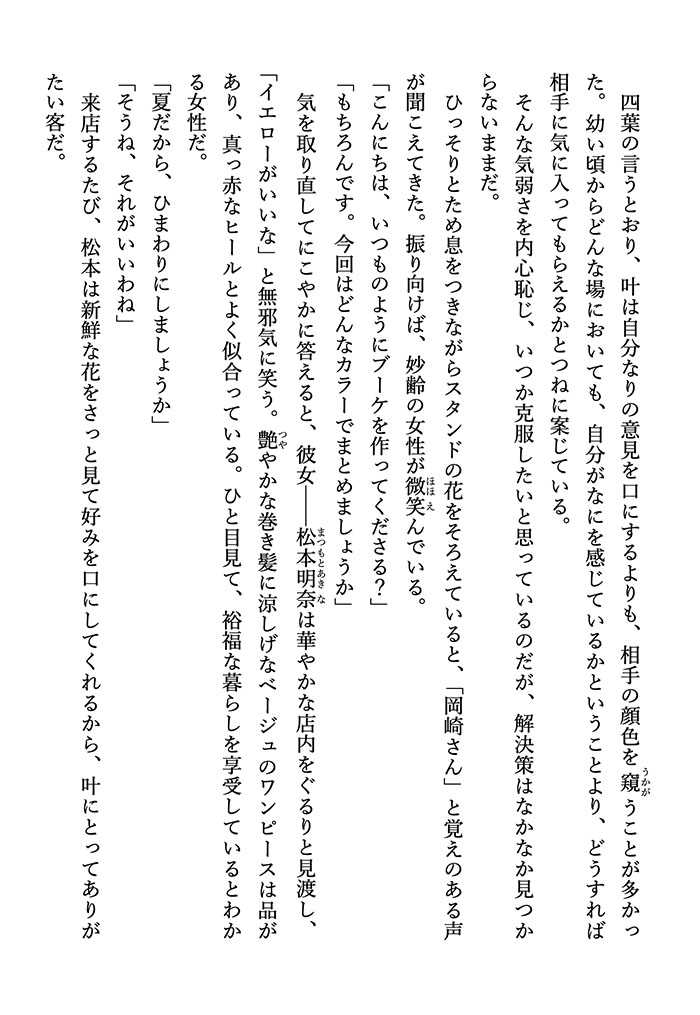 四葉の言うとおり、叶は自分なりの意見を口にするよりも、相手の顔色を窺うことが多かっ
た。幼い頃からどんな場においても、自分がなにを感じているかということより、どうすれば
相手に気に入ってもらえるかとつねに案じている。
そんな気弱さを内心恥じ、いつか克服したいと思っているのだが、解決策はなかなか見つか
らないままだ。
ひっそりとため息をつきながらスタンドの花をそろえていると、「岡崎さん」と覚えのある声
が聞こえてきた。振り向けば、妙齢の女性が微笑んでいる。
「こんにちは、いつものようにブーケを作ってくださる？」
「もちろんです。今回はどんなカラーでまとめましょうか」
気を取り直してにこやかに答えると、彼女――松本明奈は華やかな店内をぐるりと見渡し、
「イエローがいいな」と無邪気に笑う。艶やかな巻き髪に涼しげなベージュのワンピースは品が
あり、真っ赤なヒールとよく似合っている。ひと目見て、裕福な暮らしを享受しているとわか
る女性だ。
「夏だから、ひまわりにしましょうか」
「そうね、それがいいわね」
来店するたび、松本は新鮮な花をさっと見て好みを口にしてくれるから、叶にとってありが
たい客だ。